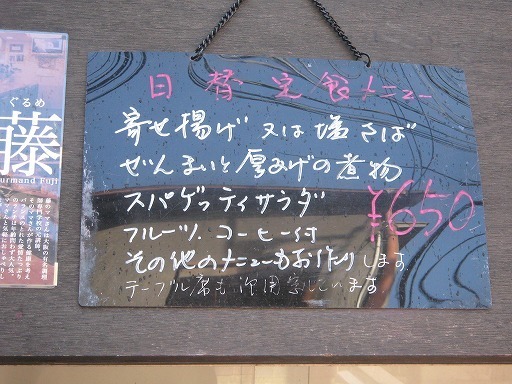 日替定食メニュー
寄せ揚げ又は塩さば
ぜんまいと厚あげの煮物
スパゲッティサラダ
¥650
フルーツ、コーヒー付
その他のメニューもお作りします
テーブル席も御用意しています
ぐるめ
藤
urmand Fuji